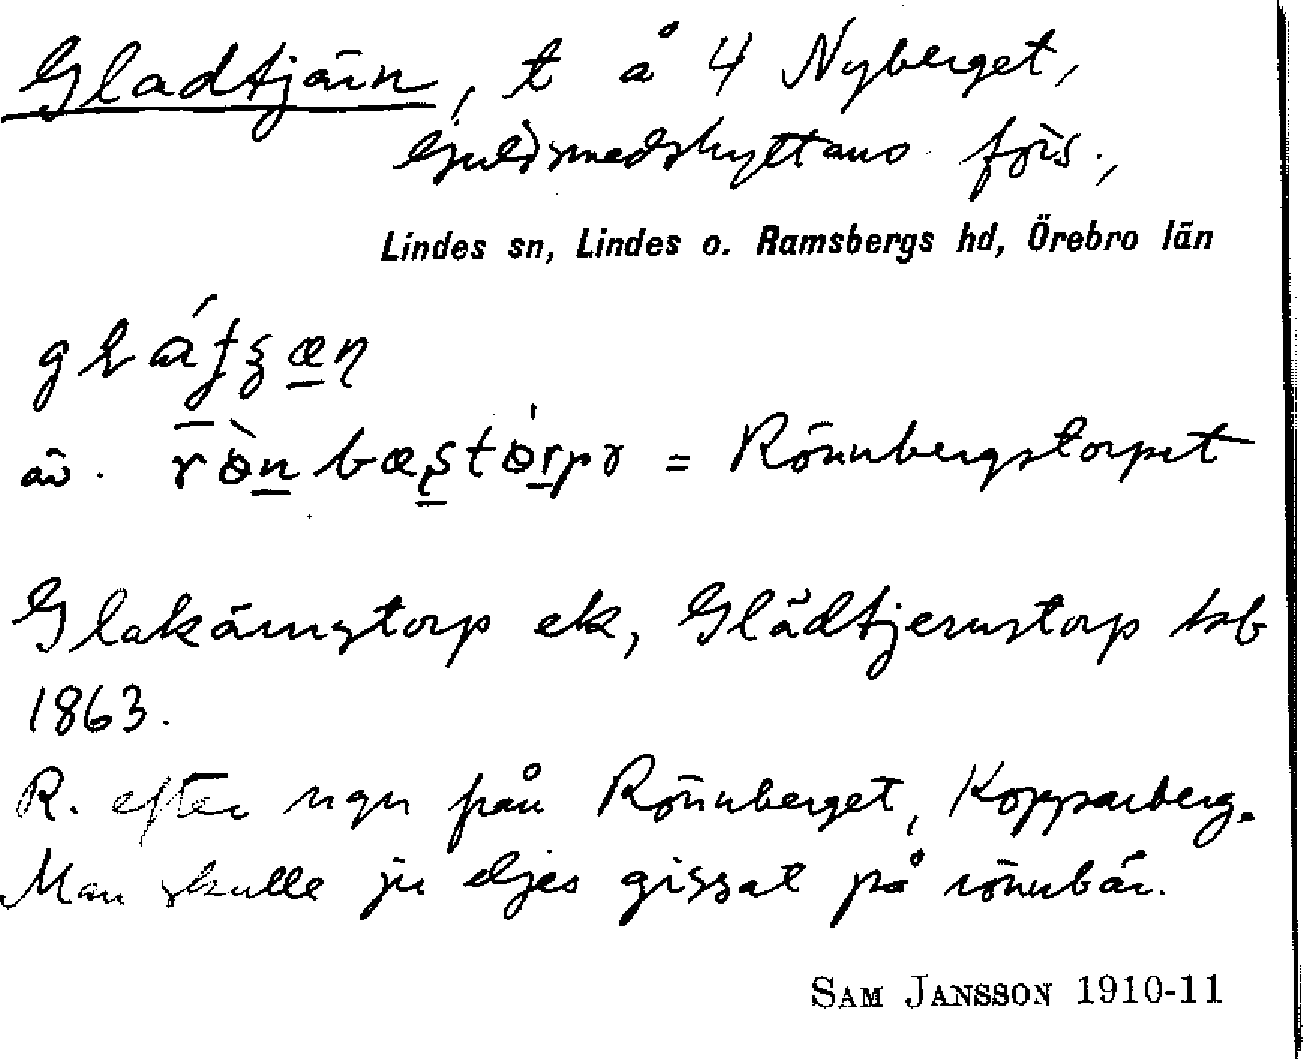 Gladtjärn, t å 4 Nyberget,
Guldsmedshyttans förs.,
Lindes sn, Lindes o. Ramsbergs hd, Örebro län
av. = Rönnbergstorpet
Glakärnstorp ek, Glädtjernstorp hfb
1863.
R. efter ngn från Rönnberget, Kopparberg.
Man skulle ju eljes gissat på rönnbär.
SAM JANSSON 1910-11